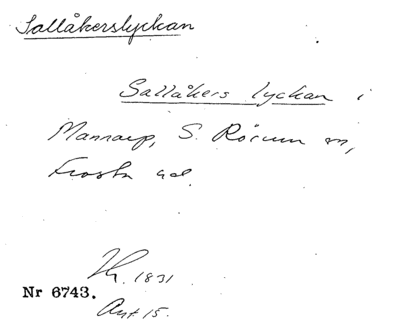 Sallåkerslyckan
Sallåkers lyckan i
Mannarp, S. Rörum sn,
Frosta hd.
1831
Nr 6743.
Akt 15.